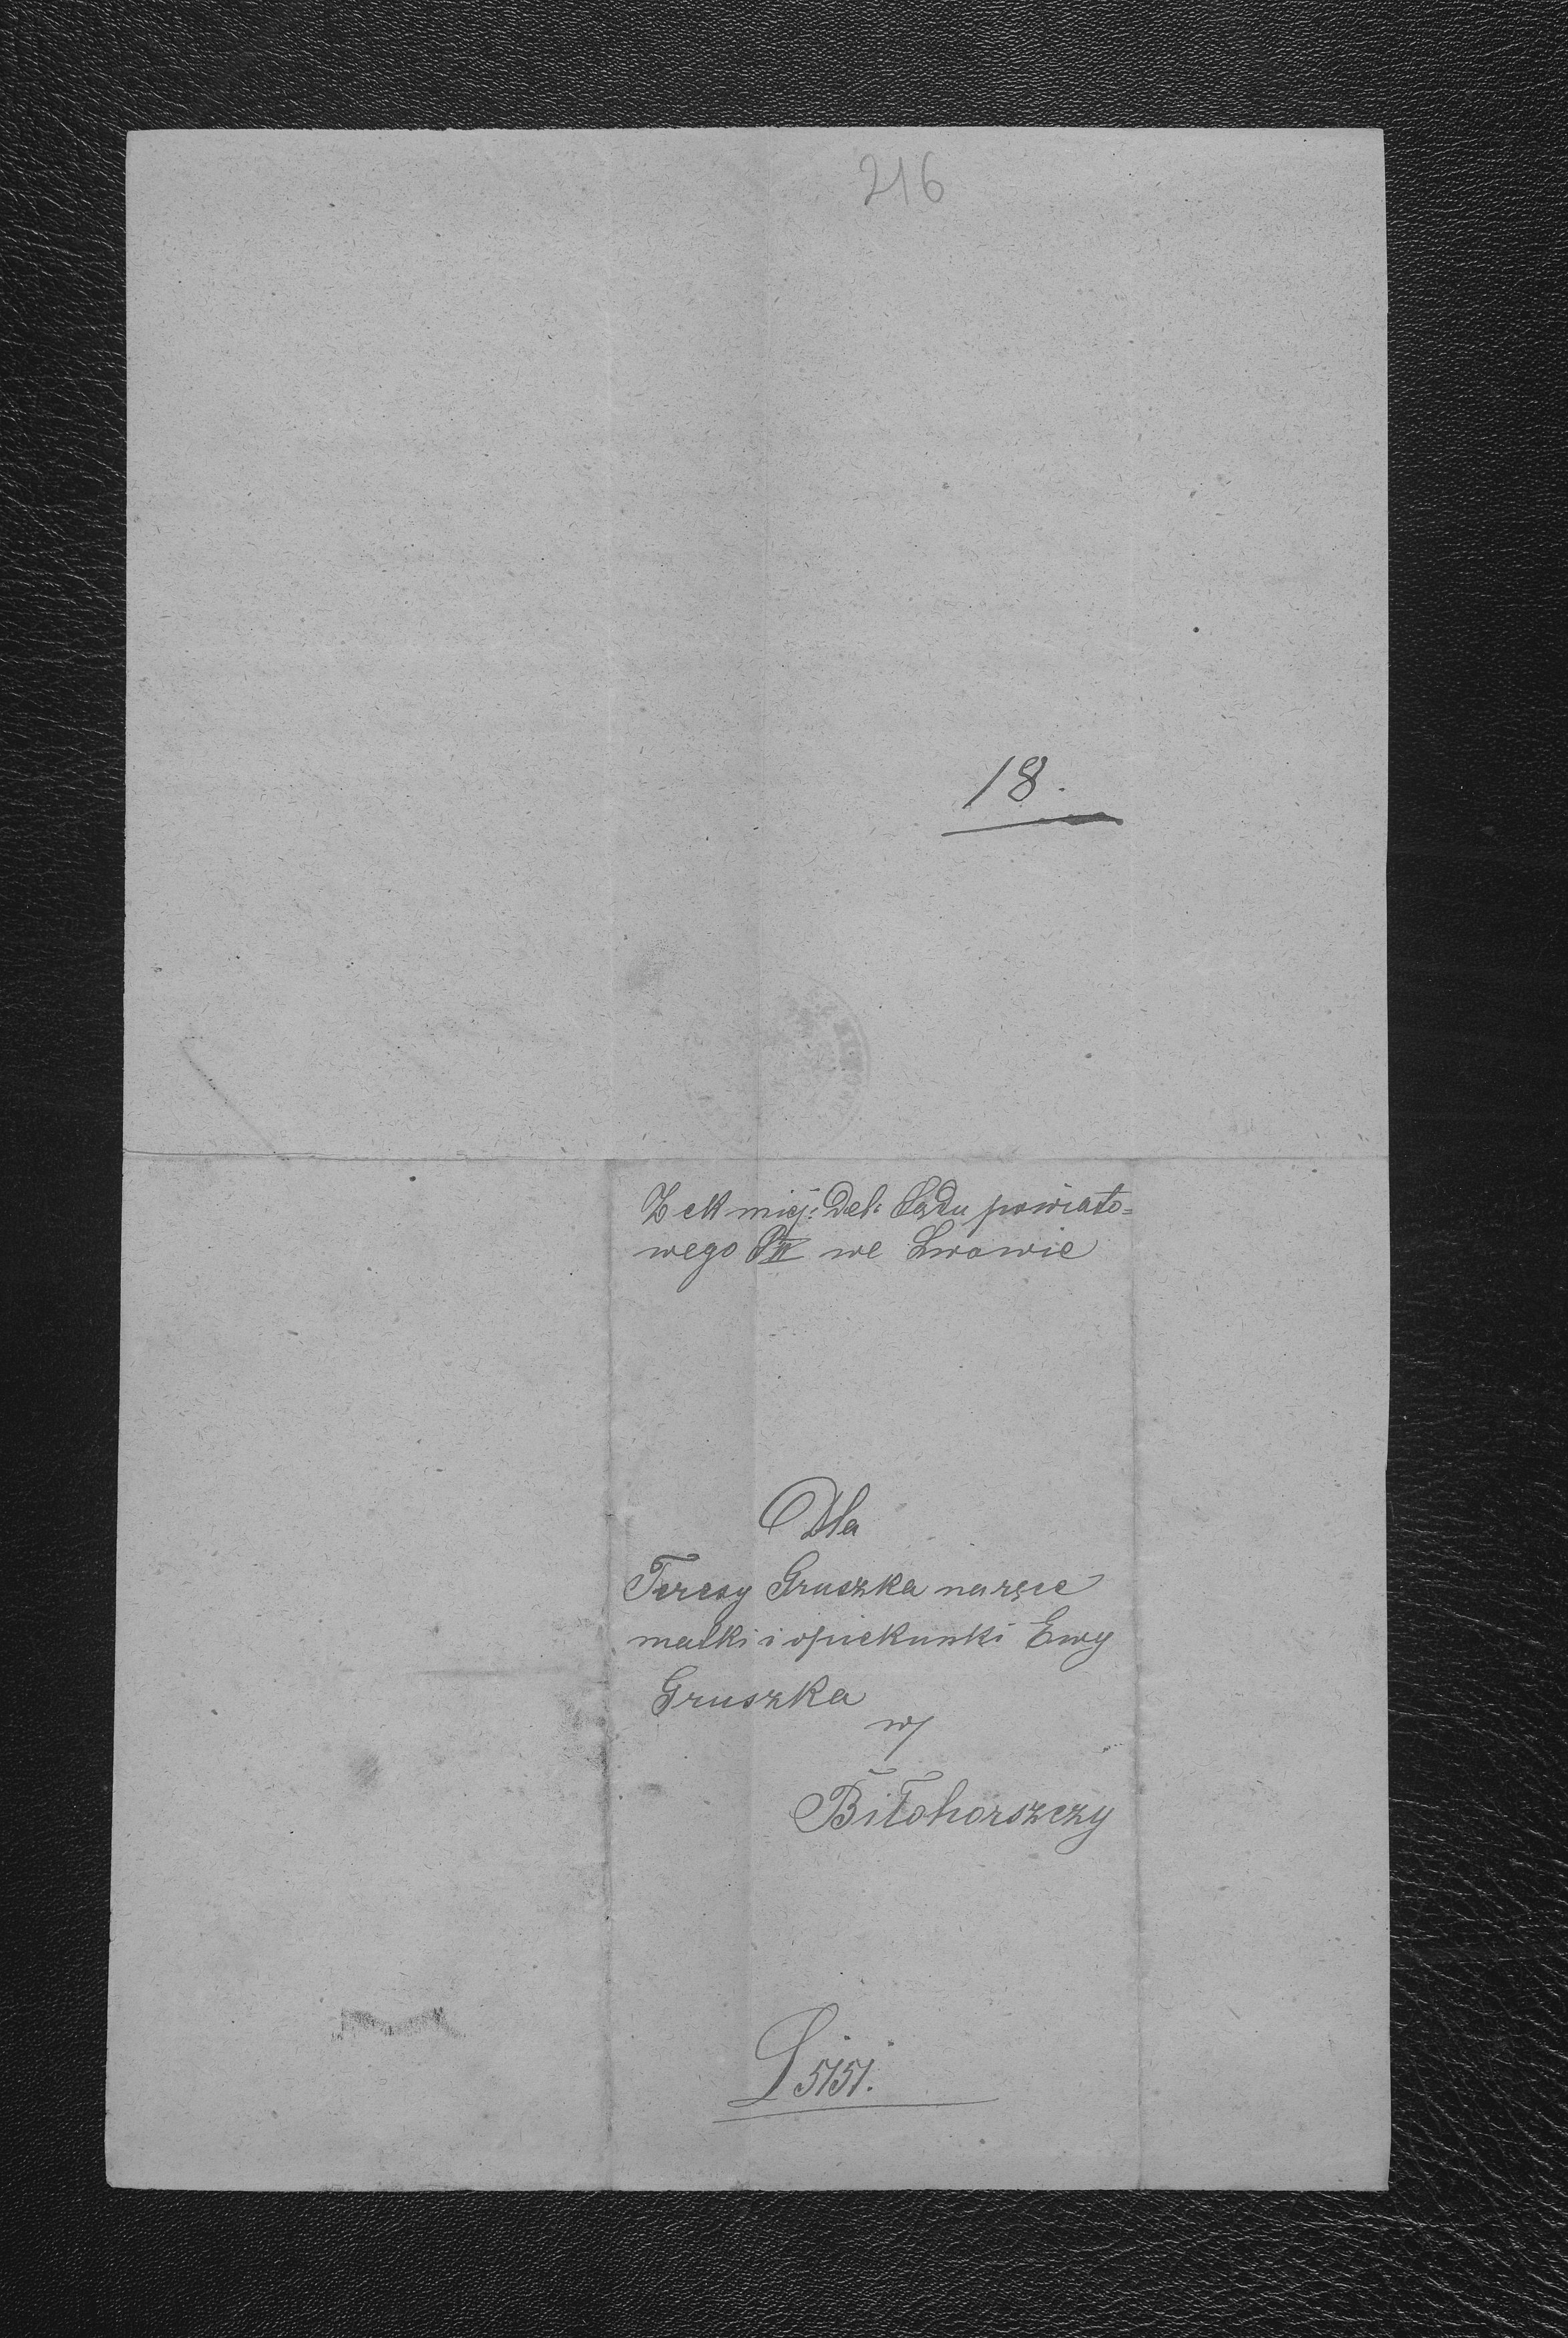 216
18.
Z ck miej: Del: Sądu powiato=
wego we Lwowie
Dla
Teresy Gruszka na ręce
matki i opiekunki Ewy
Gruszka
w/
Biłohorszczy
L 5151.